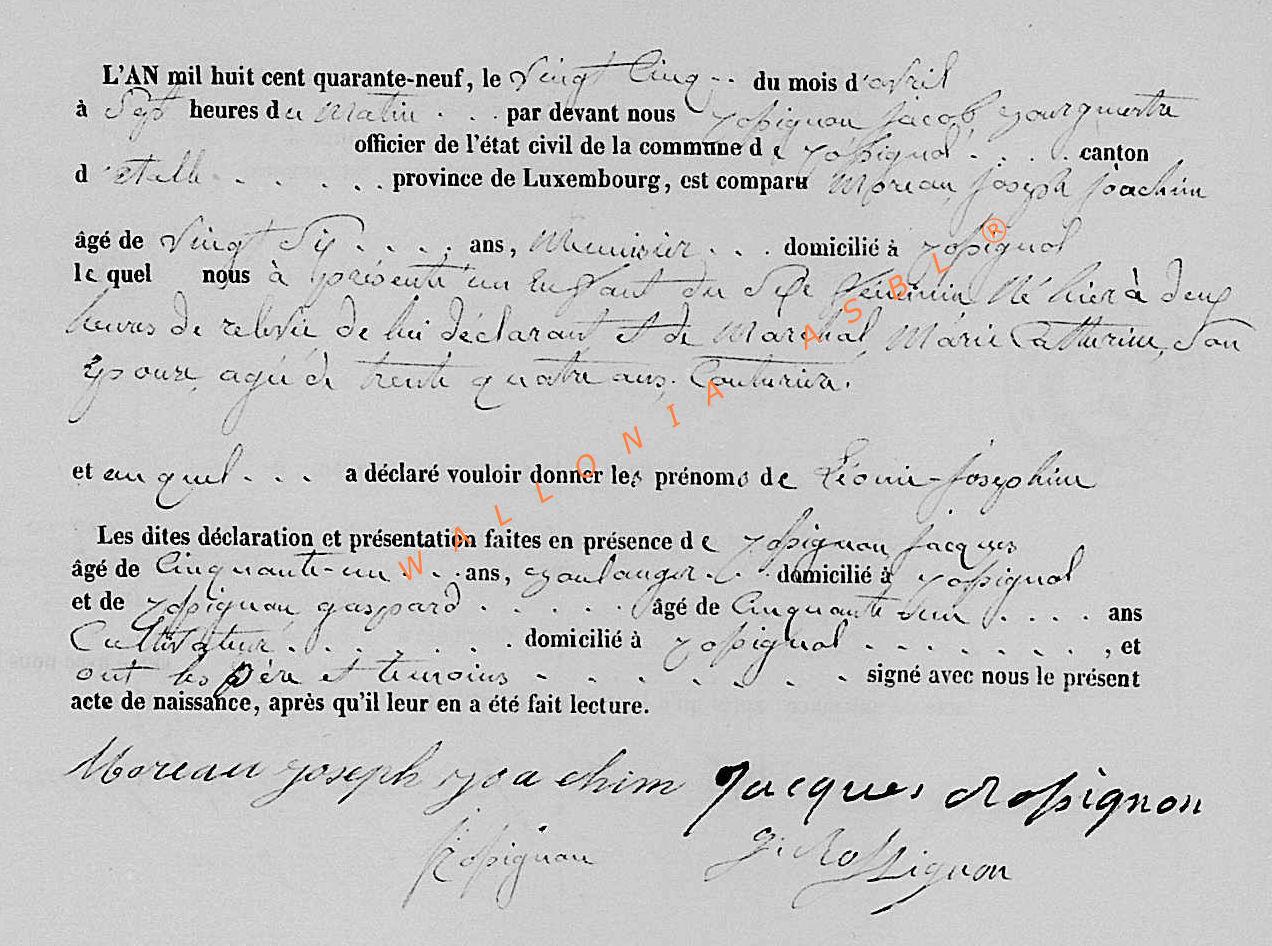 L'AN mil huit cent quarante-neuf, le Vingt Cinq du mois d'avril
à Sept heures du matin . . . par devant nous Rossignon Jacob Bourgmestre
officier de l'état civil de la commune de Rossignol . . . . canton
d'Etalle . . . . . . province de Luxembourg, est comparu Moreau, Joseph Joachim
âgé de Vingt Six . . . . ans, Menuisier . . . domicilié à Rossignol
lequel nous à présenté un Enfant du Sexe Féminin Né hier à deux
heures de relevée de lui déclarant et de Marchal, Marie Catherine, Son
Epouse, agée de trente quatre ans. Couturière.
et auquel . . . a déclaré vouloir donner les prénoms de Léonie-Joséphine
Les dites déclaration et présentation faites en présence de Rossignon Jacques
âgé de Cinquante-un . . . ans, Boulanger . . . domicilié à Rossignol
et de Rossignon, gaspard . . . . . . âgé de Cinquante . . . . ans
Cultivateur . . . . . . . domicilié à Rossignol . . . . . . . . , et
ont les père et temoins . . . . . . . signé avec nous le présent
acte de naissance, après qu'il leur en a été fait lecture.
Moreau joseph joachim Jacques Rossignon
Rossignon g. Rossignon
WALLONIA ASBL ®